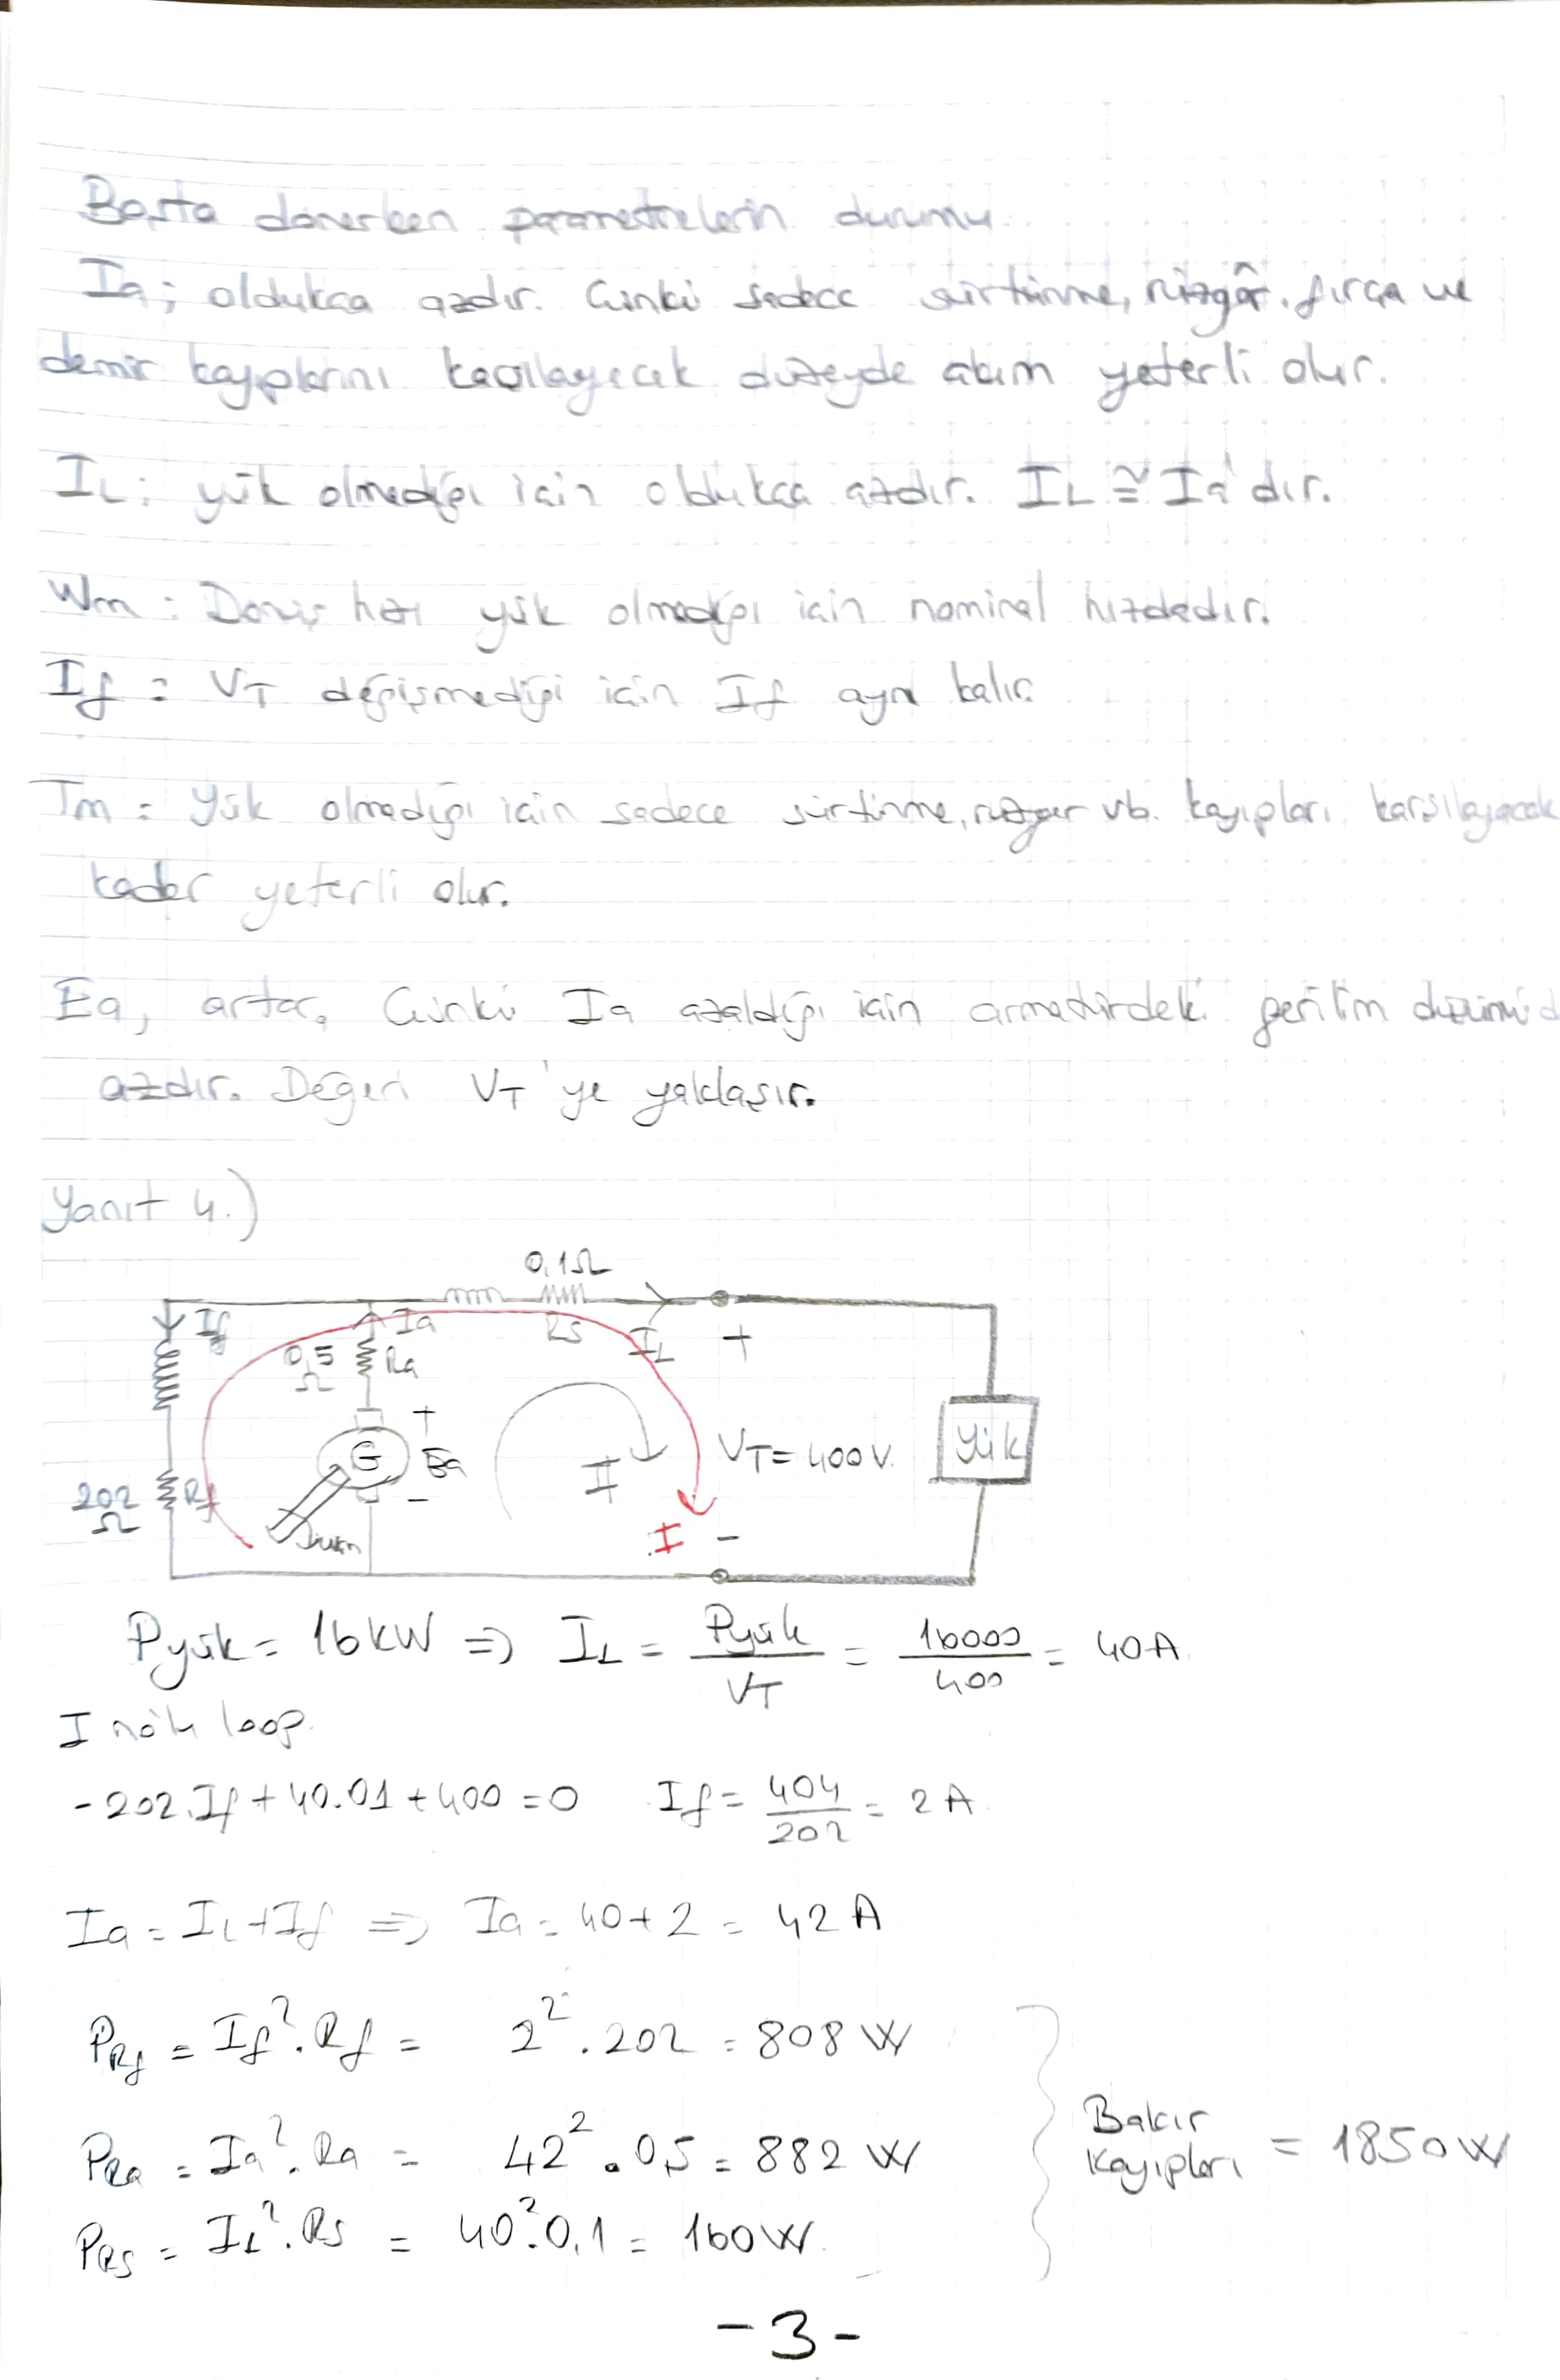 Boşta dönerken parametrelerin durumu.
Ia; oldukça azdır. Çünkü sadece sürtünme, rüzgâr, fırça ve
demir kayıplarını karşılayacak düzeyde akım yeterli olur.
IL: yük olmadığı için oldukça azdır. IL ≅ Ia'dır.
Wm: Dönüş hızı yük olmadığı için nominal hızdadır.
If: VT değişmediği için If aynı kalır.
Tm: Yük olmadığı için sadece sürtünme, rüzgar vb. kayıpları karşılayacak
kadar yeterli olur.
Ea, artar, Çünkü Ia azaldığı için armatürdeki gerilim düşümü d
azdır. Değeri VT'ye yaklaşır.
Yanıt 4.)
0,1Ω
If Ia Rs IL +
0,5 Ω Ra
+
G Ea II VT = 400V. Yük
-
202 Ω Rf
I -
Pyük = 16kW => IL = Pyük / VT = 16000 / 400 = 40A.
I nolu loop.
-202.If + 40.01 + 400 = 0 If = 404 / 202 = 2A.
Ia = IL + If => Ia = 40 + 2 = 42A
PRf = If².Rf = 2².202 = 808 W
PRa = Ia².Ra = 42².0,5 = 882 W
Bakır Kayıpları = 1850W
PRs = IL².Rs = 40².0,1 = 160W.
-3-